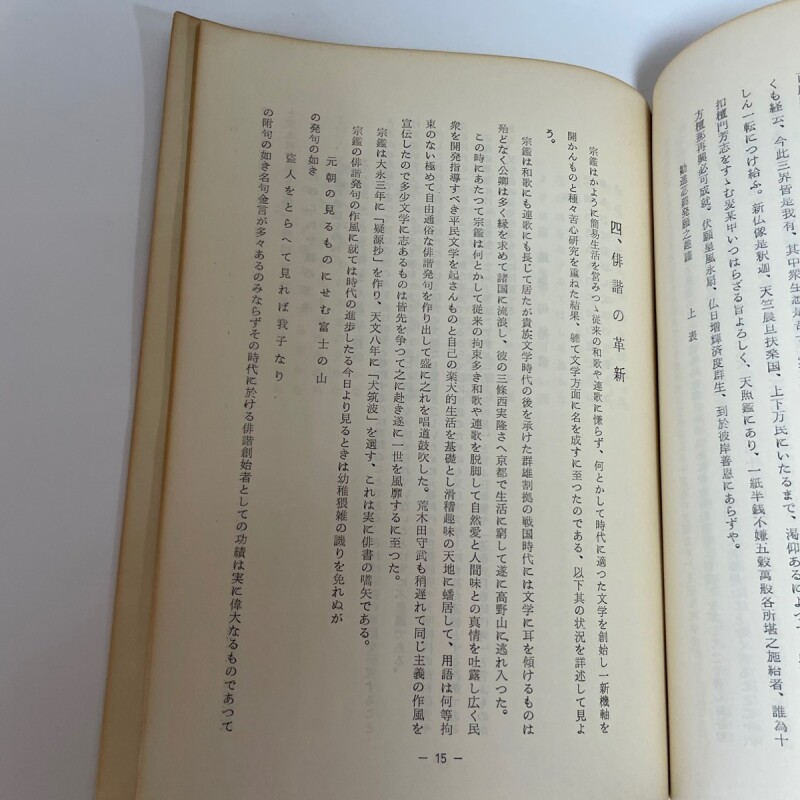 くも経云、今此三界皆是我有、其中衆生
しん一転につけ給ふ。新仏像是釈迦、天竺晨旦扶桑国、上下万民にいたるまで、渇仰あるに
扣檀門芳志をすゝむ変某中いつはらざる旨よろしく、天照鑑にあり、一紙半銭不嫌五穀萬般各所堪之施給者、誰為十
方檀那再興必可成就。伏願皇風永扇、仏日増輝済度群生、到於彼岸善恩にあらずや。
上表
四、俳諧の革新
宗鑑はかように簡易生活を営みつゝ従来の和歌や連歌に慊らず、何とかして時代に適つた文学を創始し一新機軸を
開かんものと種々苦心研究を重ねた結果、軈て文学方面に名を成すに至つたのである、以下其の状況を詳述して見よ
う。
宗鑑は和歌にも連歌にも長じて居たが貴族文学時代の後を承けた群雄割拠の戦国時代には文学に耳を傾けるものは
殆どなく公卿は多く縁を求めて諸国に流浪し、彼の三條西実隆さへ京都で生活に窮して遂に高野山に逃れ入つた。
この時にあたつて宗鑑は何とかして従来の拘束多き和歌や連歌を脱脚して自然愛と人間味との真情を吐露し広く民
衆を開発指導すべき平民文学を起さんものと自己の楽天的生活を基礎とし滑稽趣味の天地に蟠居して、用語は何等拘
束のない極めて自由通俗な俳諧発句を作り出して盛に之れを唱道鼓吹した。荒木田守武も稍遅れて同じ主義の作風を
宣伝したので多少文学に志あるものは皆先を争つて之に赴き遂に一世を風靡するに至つた。
宗鑑は大永三年に「疑源抄」を作り、天文八年に「犬筑波」を選す、これは実に俳書の嚆矢である。
宗鑑の俳諧発句の作風に就ては時代の進歩したる今日より見るときは幼稚猥雑の譏りを免れぬが
元朝の見るものにせむ富士の山
の発句の如き
盗人をとらへて見れば我子なり
の附句の如き名句金言が多々あるのみならずその時代に於ける俳諧創始者としての功績は実に偉大なるものであつて
— 15 —